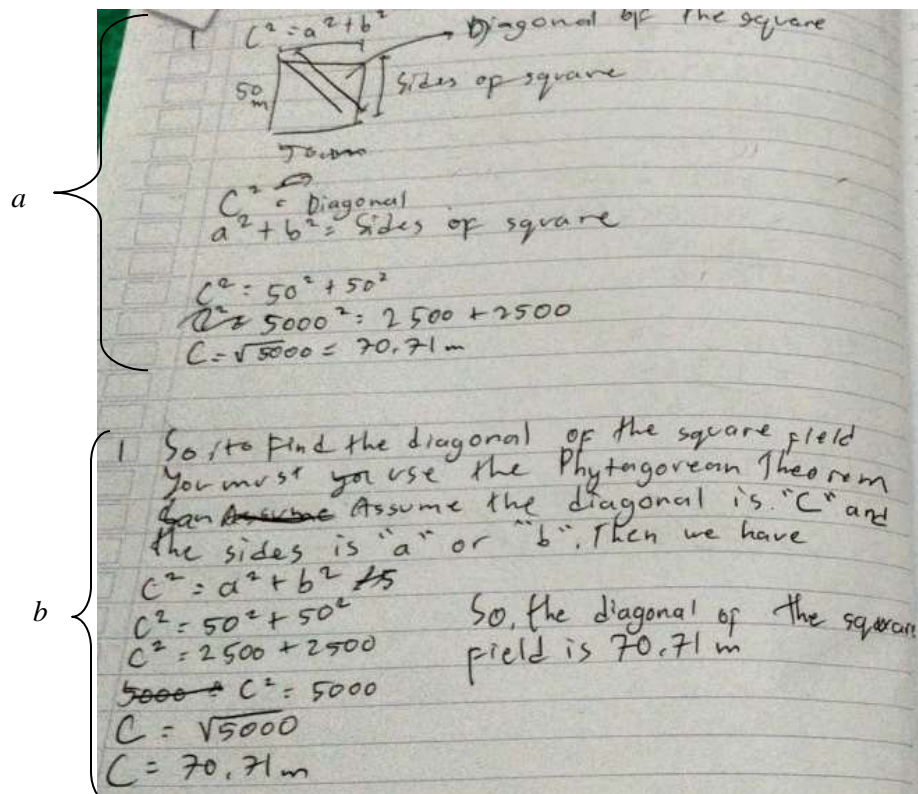 a
1 C² = a² + b² Diagonal of the square
50 m
sides of square
50 m
C² = Diagonal
a² + b² = Sides of square
C² = 50² + 50²
5000² = 2500 + 2500
C = √5000 = 70,71 m
b
1 So, to find the diagonal of the square field
You must you use the Phytagorean Theorem
Assume Assume the diagonal is "C" and
the sides is "a" or "b". Then we have
C² = a² + b²
C² = 50² + 50²
C² = 2500 + 2500
5000 = C² = 5000
C = √5000
C = 70,71 m
So, the diagonal of the square
field is 70,71 m